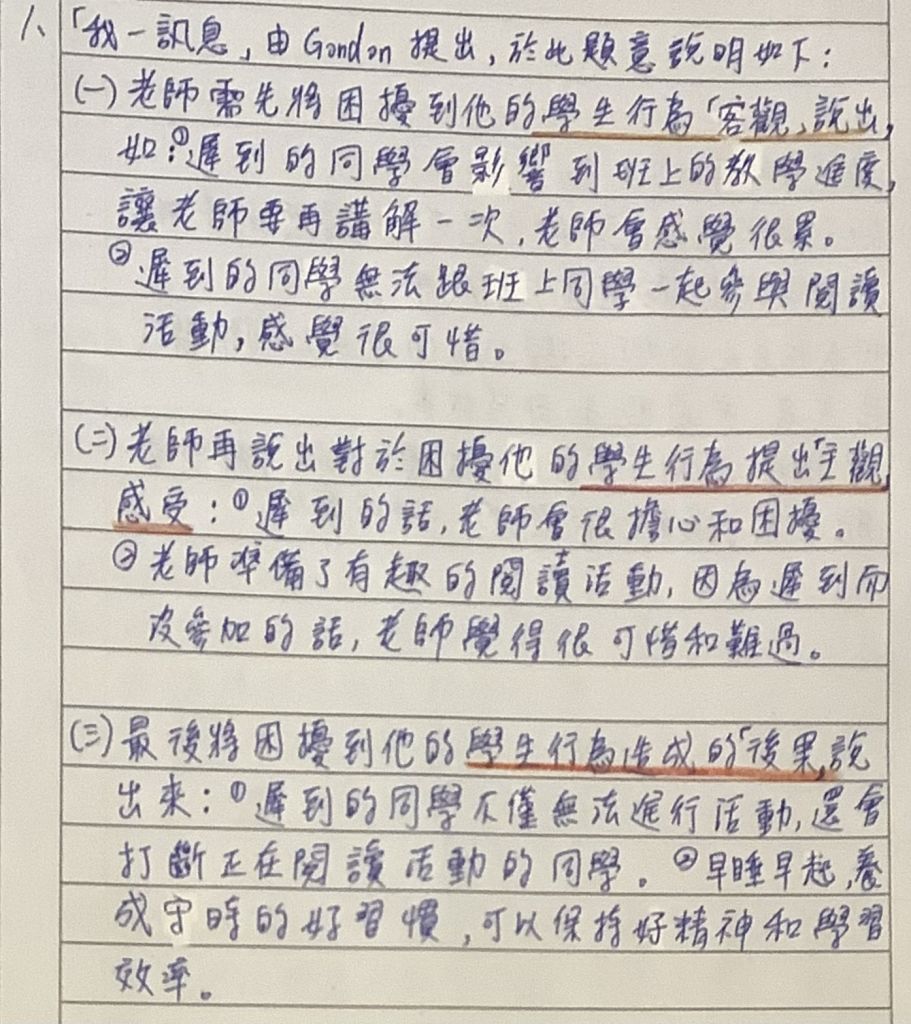 1、「我一訊息」,由Gondon提出,於此題意說明如下:
(一)老師需先將困擾到他的學生行為「客觀」說出,
如:①遲到的同學會影響到班上的教學進度,
讓老師要再講解一次,老師會感覺很累。
②遲到的同學無法跟班上同學一起參與閱讀
活動,感覺很可惜。
(二)老師再說出對於困擾他的學生行為提出「主觀
感受:①遲到的話,老師會很擔心和困擾。
②老師準備了有趣的閱讀活動,因為遲到而
沒參加的話,老師覺得很可惜和難過。
(三)最後將困擾到他的學生行為造成的「後果」說
出來:①遲到的同學不僅無法進行活動,還會
打斷正在閱讀活動的同學。②早睡早起,養
成守時的好習慣,可以保持好精神和學習
效率。